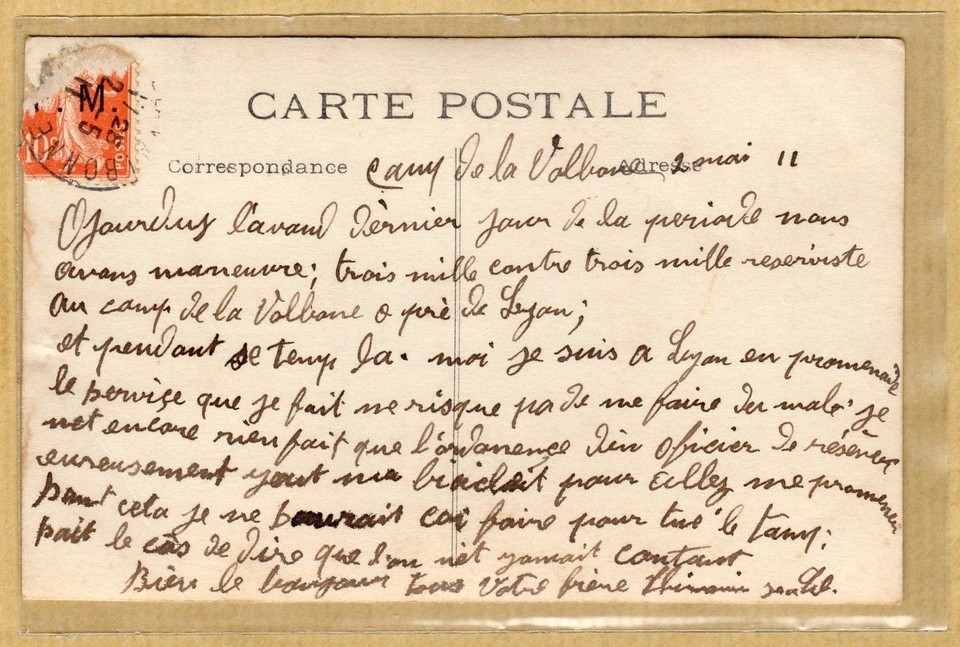 . M.
10c
POSTES
2 - 5
CARTE POSTALE
Correspondance
Adresse
Camp de la Valbone 2 mai 11
Ojourduy l'avand dèrnier jour de la periode nous
avons maneuvre; trois mille contre trois mille reserviste
au camp de la Valbone a prè de Lyon;
et pendant se temp la. moi je suis a Lyon en promenade
le service que je fait ne risque pa de me faire du male. je
net encore rien fait que l'ordonence d'un oficier de résèrve
eureusement yaut ma biciclèt pour allez me promener
sant cela je ne saurait coi faire pour tué le tamp;
sait le cas de dire que l'on nèt jamait contant
Bien le bonjour tous Votre frère